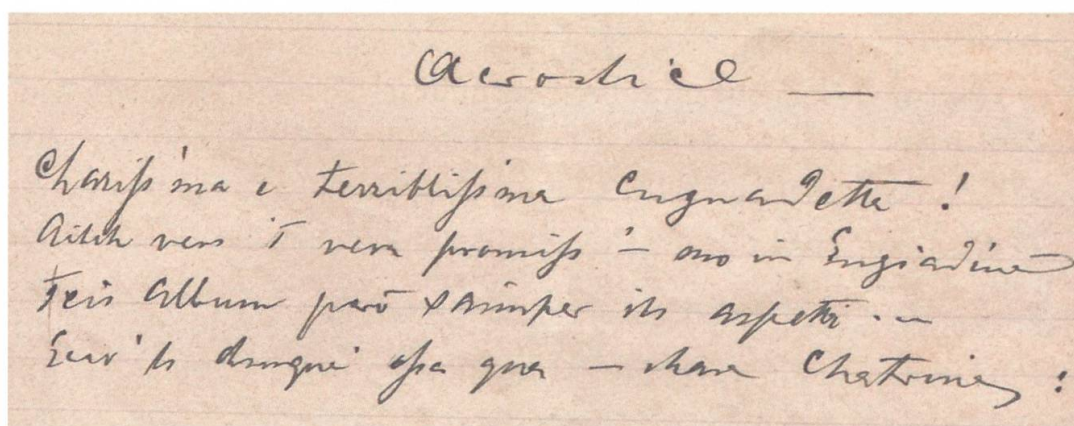 Acrostic —
Charissima e terriblissima Cugnadetta!
Aitch vers T' vera promiss – mo in Engiadina
Teis album però saimper ils aspetta . –
Ecco'ls dunque ossa qua – chara Chatrina :